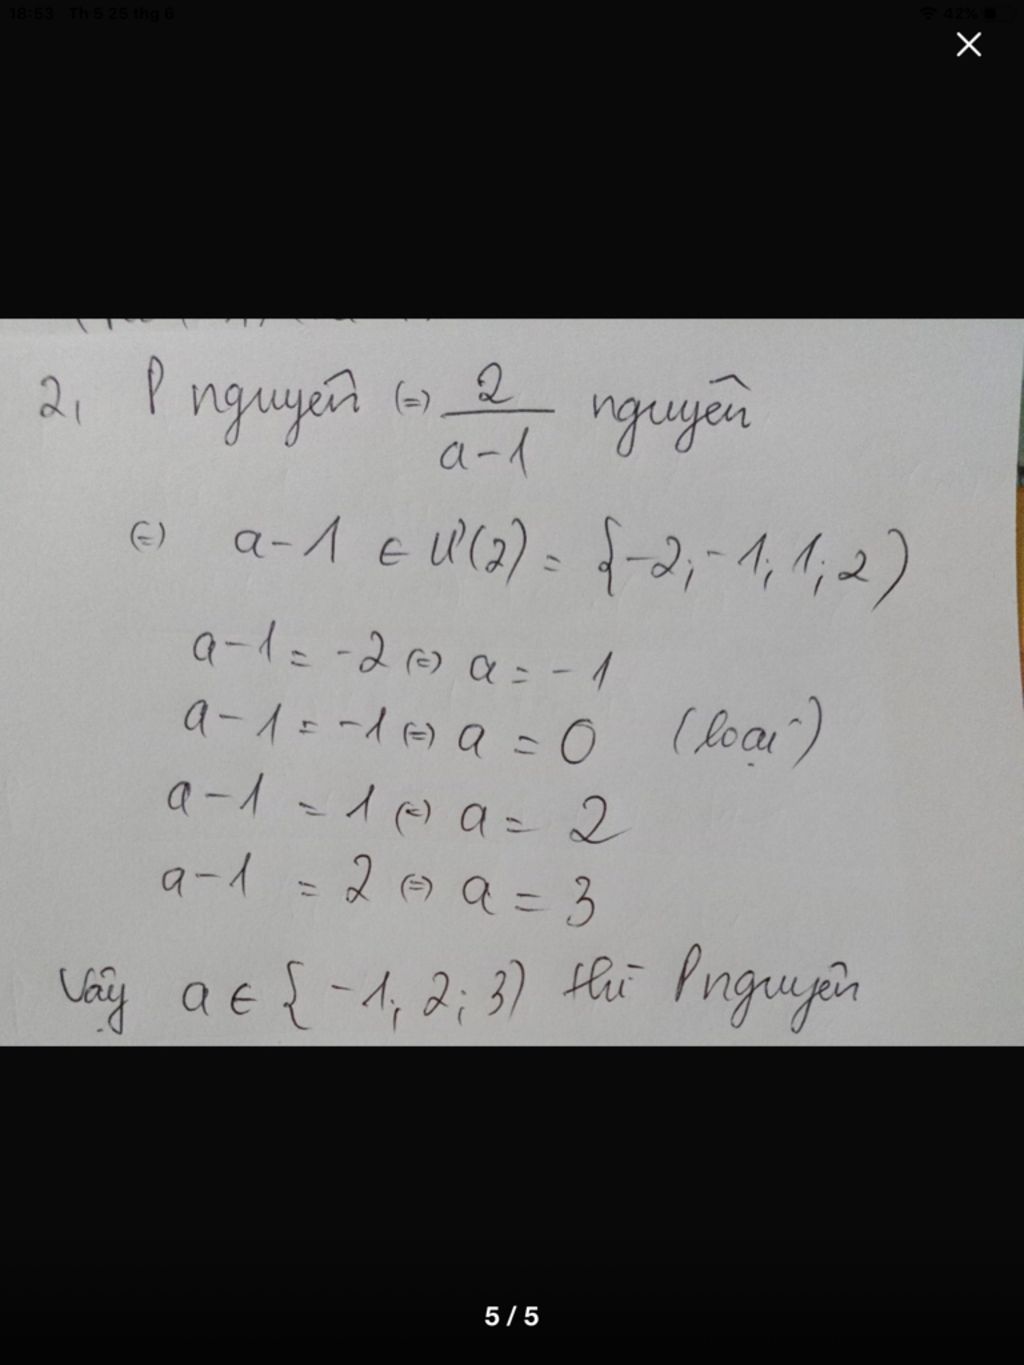 18:53 Th 5 25 thg 6
42%
2, P nguyên (=) 2/(a-1) nguyên
(=) a-1 ∈ Ư(2) = {-2; -1; 1; 2)
a-1 = -2 (=) a = -1
a-1 = -1 (=) a = 0 (loại)
a-1 = 1 (=) a = 2
a-1 = 2 (=) a = 3
Vậy a ∈ { -1; 2; 3) thì P nguyên
5 / 5